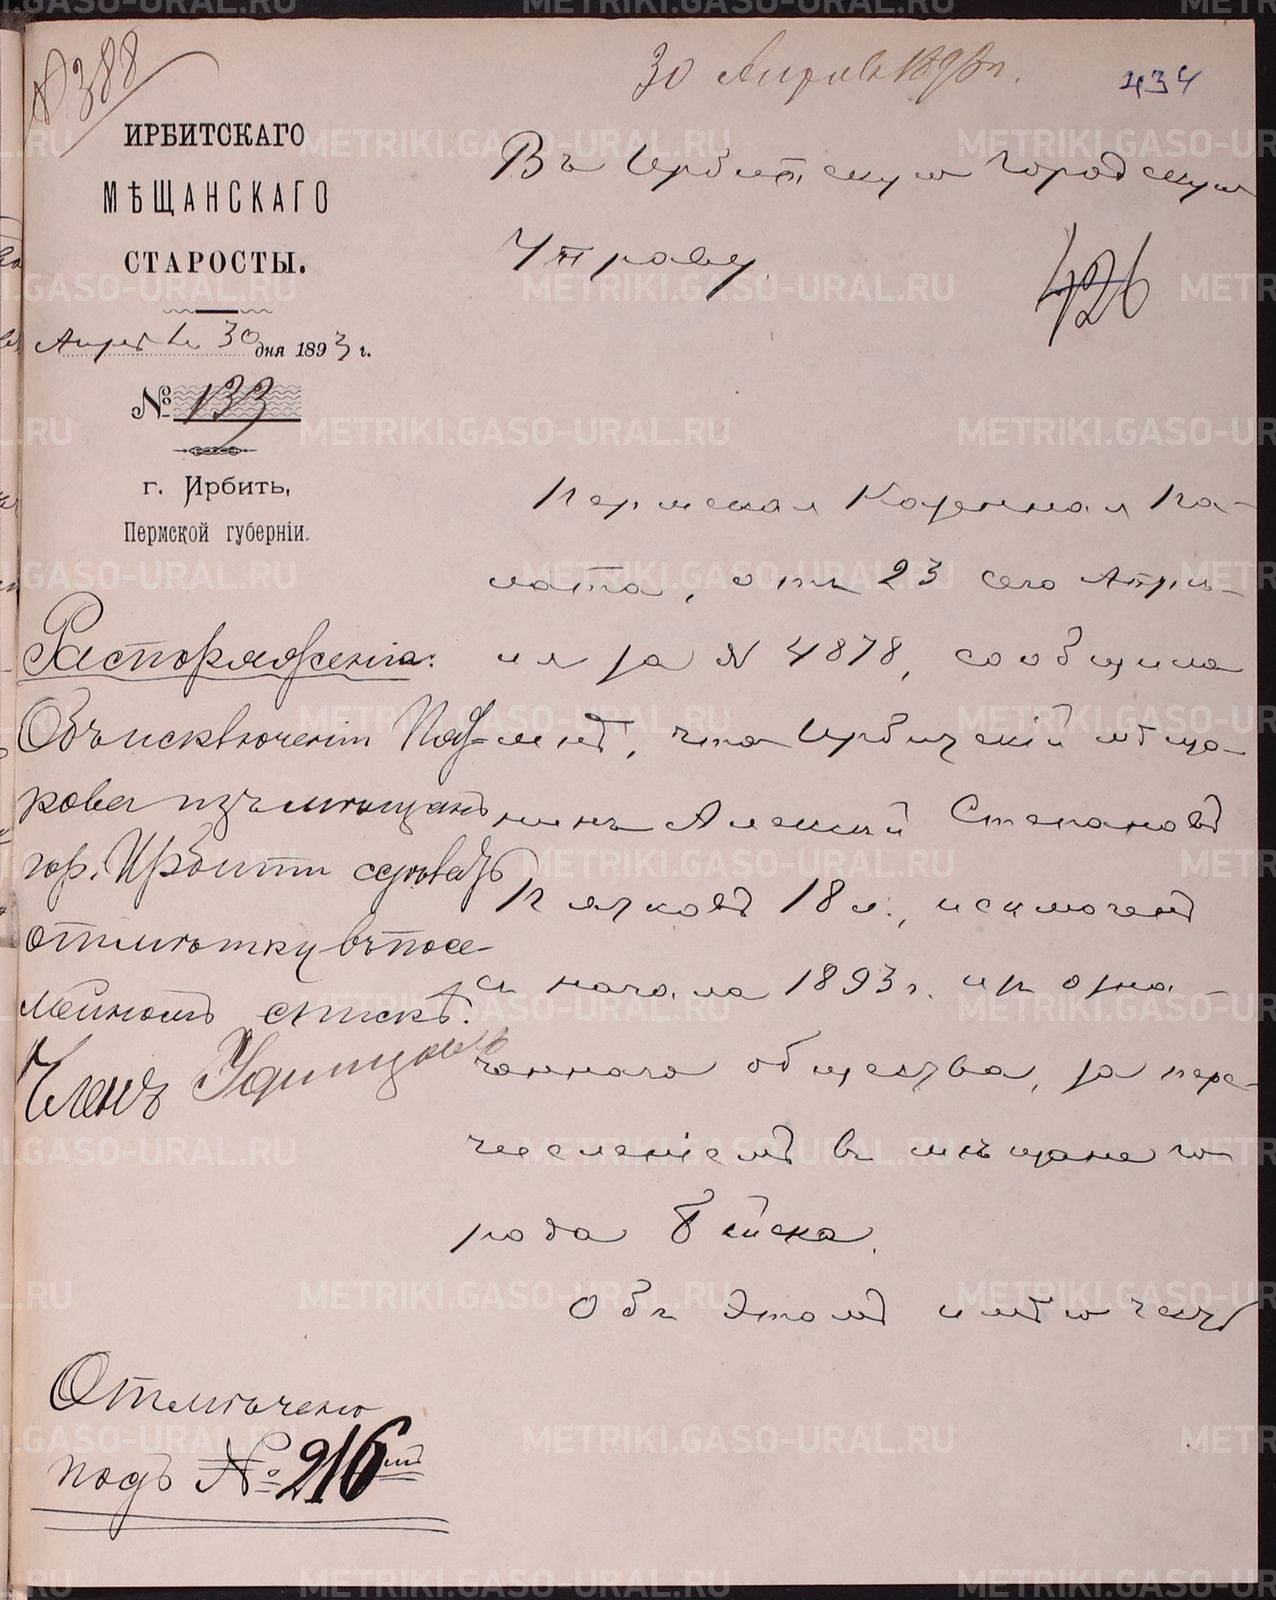 № 388
30 Апрѣля 1893 г.
434
ИРБИТСКАГО
МѢЩАНСКАГО
СТАРОСТЫ.
Апрѣля 30 дня 1893 г.
№ 133
г. Ирбить,
Пермской губерніи.
Въ Ирбитскую Городскую
Управу.
426
Пермская Казенная Па-
лата, отъ 23 сего Апрѣ-
ля за № 4878, сообщила
мнѣ, что Ирбитскій мѣща-
нинъ Алексѣй Степановъ
18 л., исключенъ
съ начала 1893 г. изъ озна-
ченнаго общества, за пере-
численіемъ въ мѣщане го-
рода Бійска.
Объ этомъ имѣю честь
Распоряженія:
Объ исключеніи
изъ мѣщанъ
гор. Ирбити сдѣлать
отмѣтку въ посе-
мейномъ спискѣ.
Членъ
Отмѣчено
подъ № 216мъ
METRIKI.GASO-URAL.RU